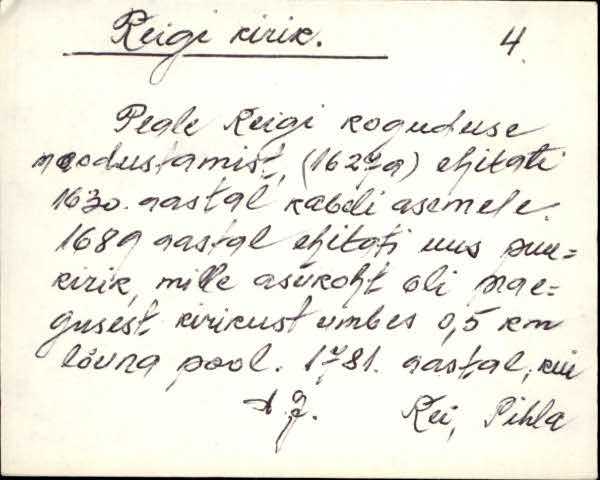 Reigi kirik. 4.
Peale Reigi koguduse
moodustamist, (1627a) ehitati
1630. aastal kabeli asemele.
1689 aastal ehitati uus puu=
kirik, mille asukoht oli prae=
gusest kirikust umbes 0,5 km
lõuna pool. 1781. aastal, kui
Rei, Pihla